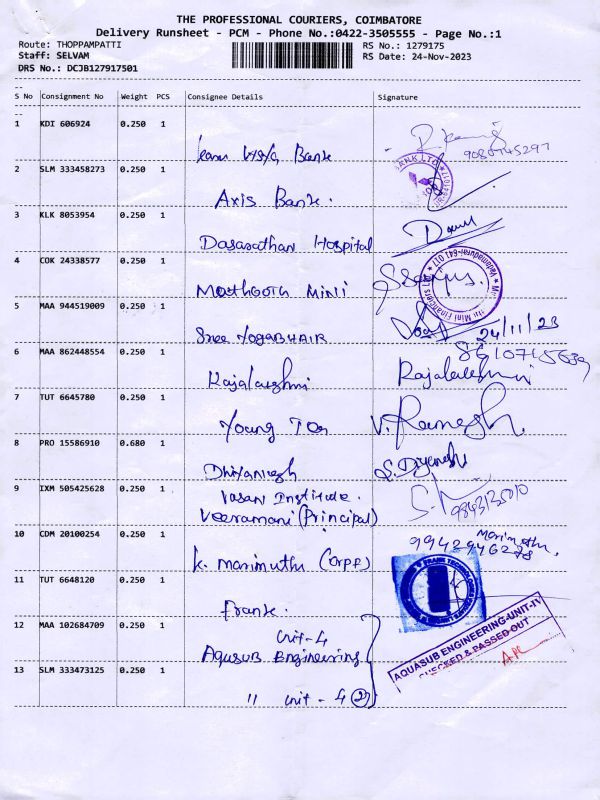 THE PROFESSIONAL COURIERS, COIMBATORE
Delivery Runsheet - PCM - Phone No.:0422-3505555 - Page No.:1
Route: THOPPAMPATTI RS No.: 1279175
Staff: SELVAM RS Date: 24-Nov-2023
DRS No.: DCJB127917501
S No Consignment No Weight PCS Consignee Details Signature
1 KDI 606924 0.250 1
Bank
2 SLM 333458273 0.250 1
Axis Bank.
3 KLK 8053954 0.250 1
Dasarathan Hospital
4 COK 24338577 0.250 1
Muthoota MINI
5 MAA 944519009 0.250 1
Sree YogABHAIR 24/11/23
6 MAA 862448554 0.250 1
Rajalakshmi Rajalakshmi
7 TUT 6645780 0.250 1
Young V. Ramesh.
8 PRO 15586910 0.680 1
9 IXM 505425628 0.250 1
Vasan Institute.
Veeramani (Principal)
10 CDM 20100254 0.250 1
K. Marimuthu Marimuthu.
9942946278
11 TUT 6648120 0.250 1
Frank.
12 MAA 102684709 0.250 1
Unit-4
AquasuB Engineering
AQUASUB ENGINEERING-UNIT-IV
CHECKED & PASSED OUT
13 SLM 333473125 0.250 1
11 unit - 4